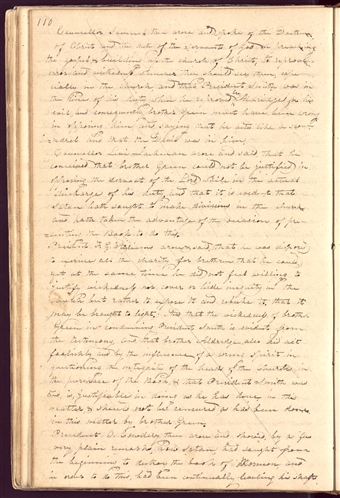 110
Councellor then arose and spoke of the Doctrine
of Christ and the duty of the servants of God in preaching
the gospel & building up the church of Christ, to reprove
error and wickedness wherever they should see them, espe-
cially in the church and that President Smith was in
the line of his duty when he reproved for his
and consequently brother Green must have been wrong
in opposing him and saying that he acts like a scoun-
drel and that the Devil was in him.
Councellor arose and said that he
conceived that brother Green could not be justified in
opposing the servant of the Lord while in the actual
discharge of his duty, and that it is evident that
Satan hath sought to make divisions in the church
and hath taken the advantage of the occasion of pre-
senting the Book to do this.
President F. G. Williams arose & said, that he was disposed
to exercise all the charity for brethren that he could,
yet at the same time he did not feel willing to
justify wickedness nor cover or hide iniquity in the
church but rather to expose it and rebuke it, that it
may be brought to light, that the wickedness of brother
Green in condemning President Smith is evident from
the testimony, and that brother Aldridge also did act
foolishly and by the influence of a wrong Spirit in
questioning the integrity of the heads of the church, in
the purchase of the Book, & that President Smith was
and is, justifiable in doing as he has done in this
matter & should not be censured as has been done
in this matter by brother Green.
President O. Cowdery then arose and showed, by a few
very plain remarks, how Satan had sought from
the beginning to destroy the book of Mormon, and
in order to do this had been continually leveling his shafts